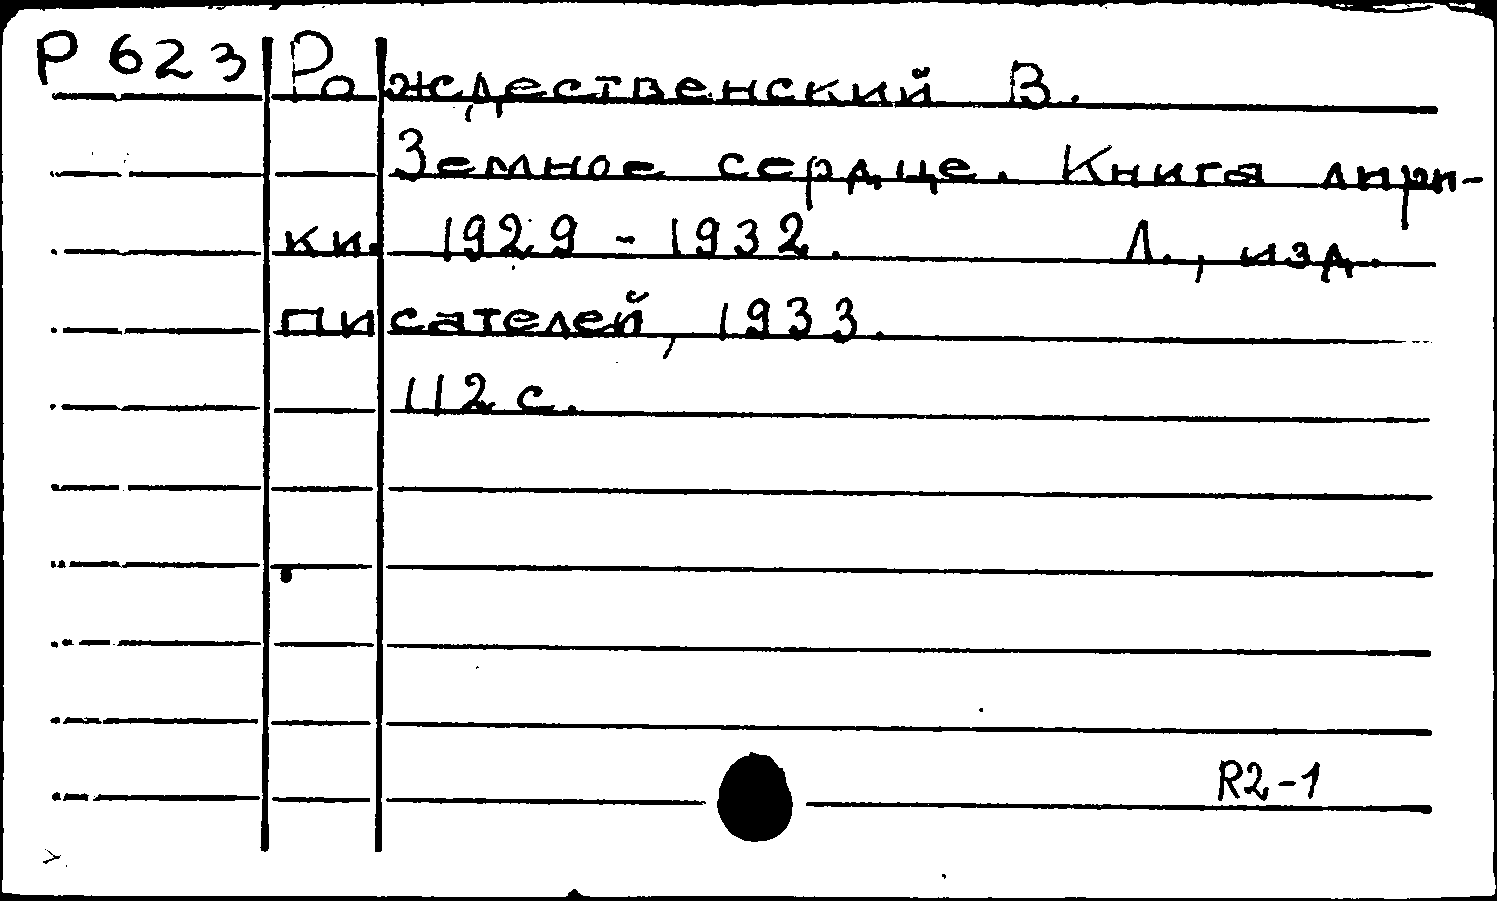 Р 623 Рождественский В.
Земное сердце. Книга лири-
ки. 1929 - 1932. Л., изд.
писателей, 1933.
112 с.
R2-1